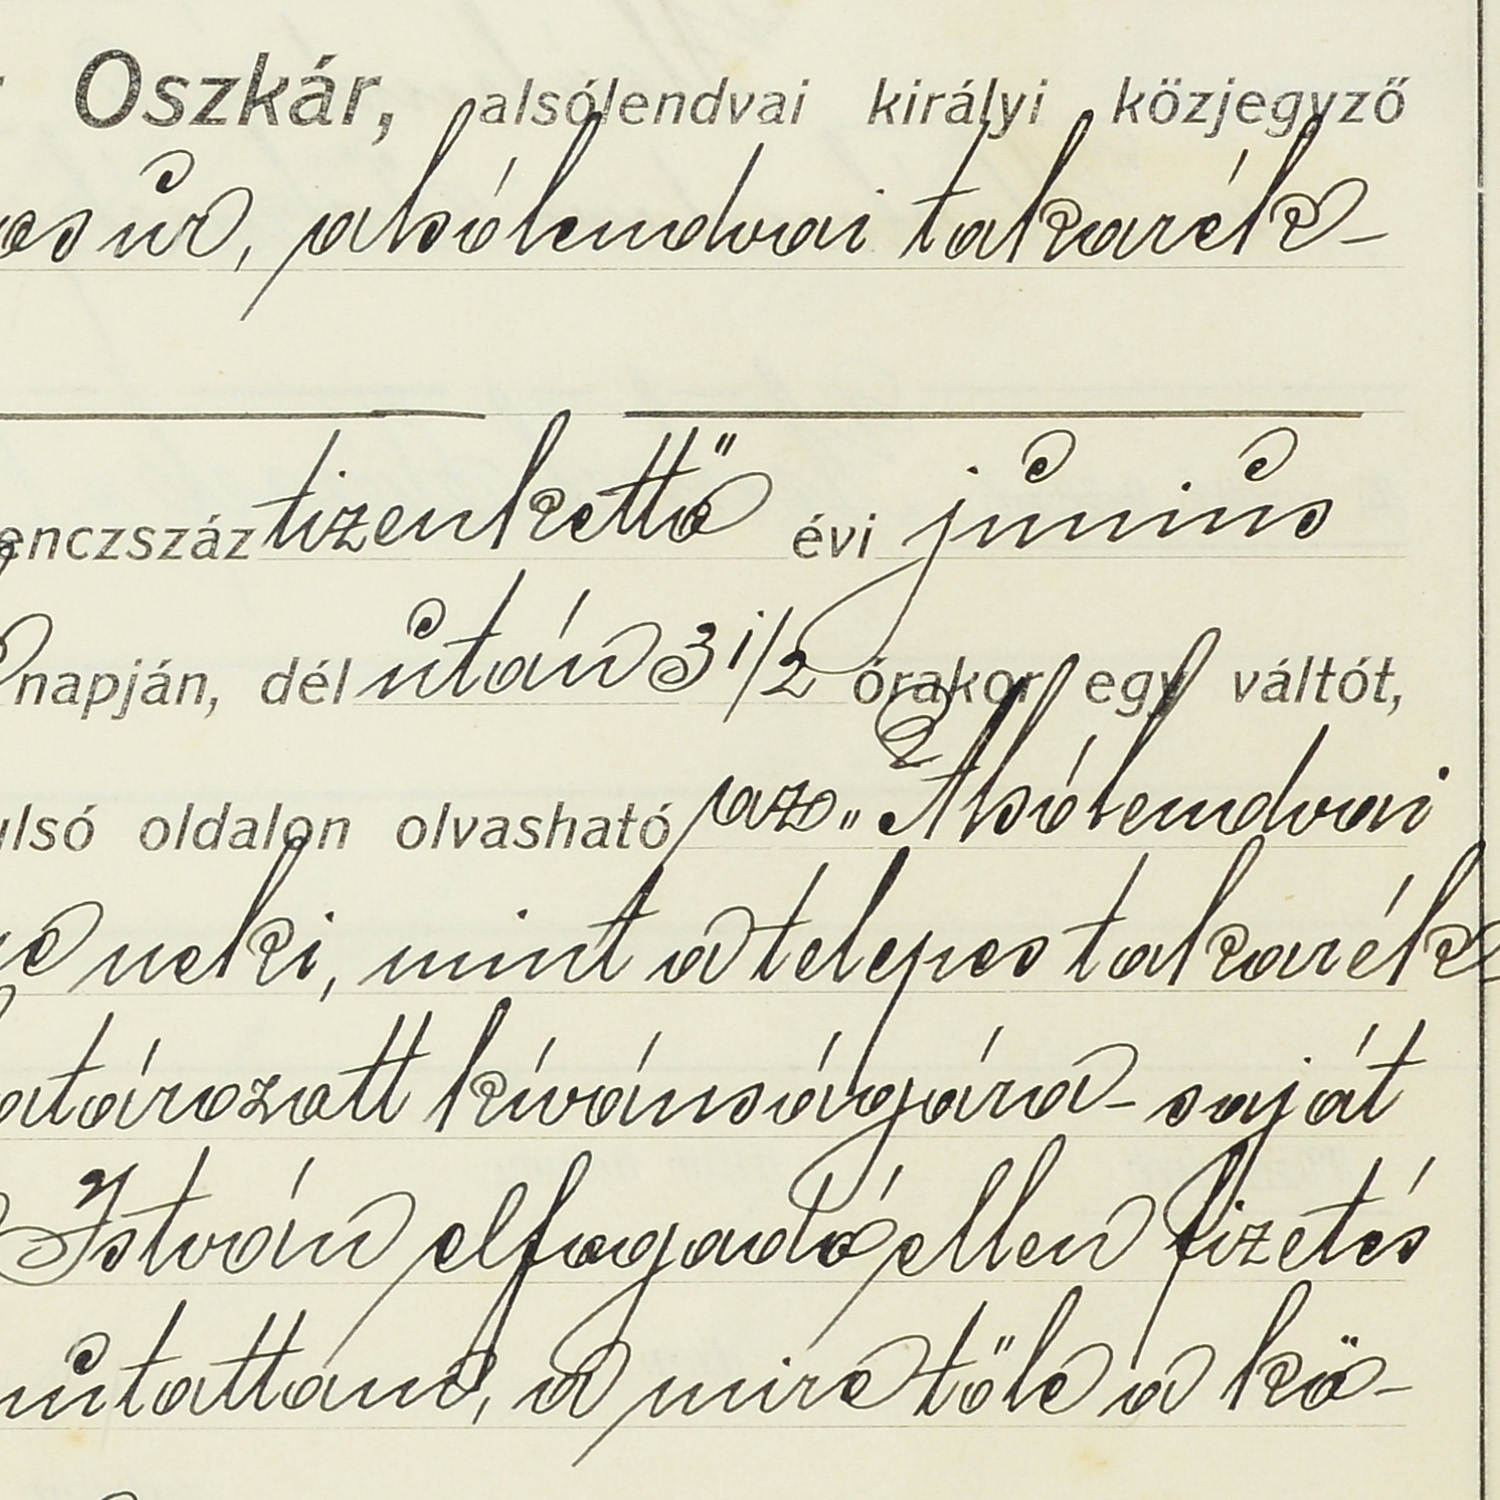 Oszkár, alsólendvai királyi közjegyző
úr, alsólendvai takarék-
enczszáz tizenkettő évi június
napján, dél után 3 1/2 órakor egy váltót,
ulsó oldalon olvasható az „Alsólendvai
neki, mint a telepes takarék
atározott kívánságára - saját
István elfogadó ellen fizetés
mutattam, a mire tőle a kö-